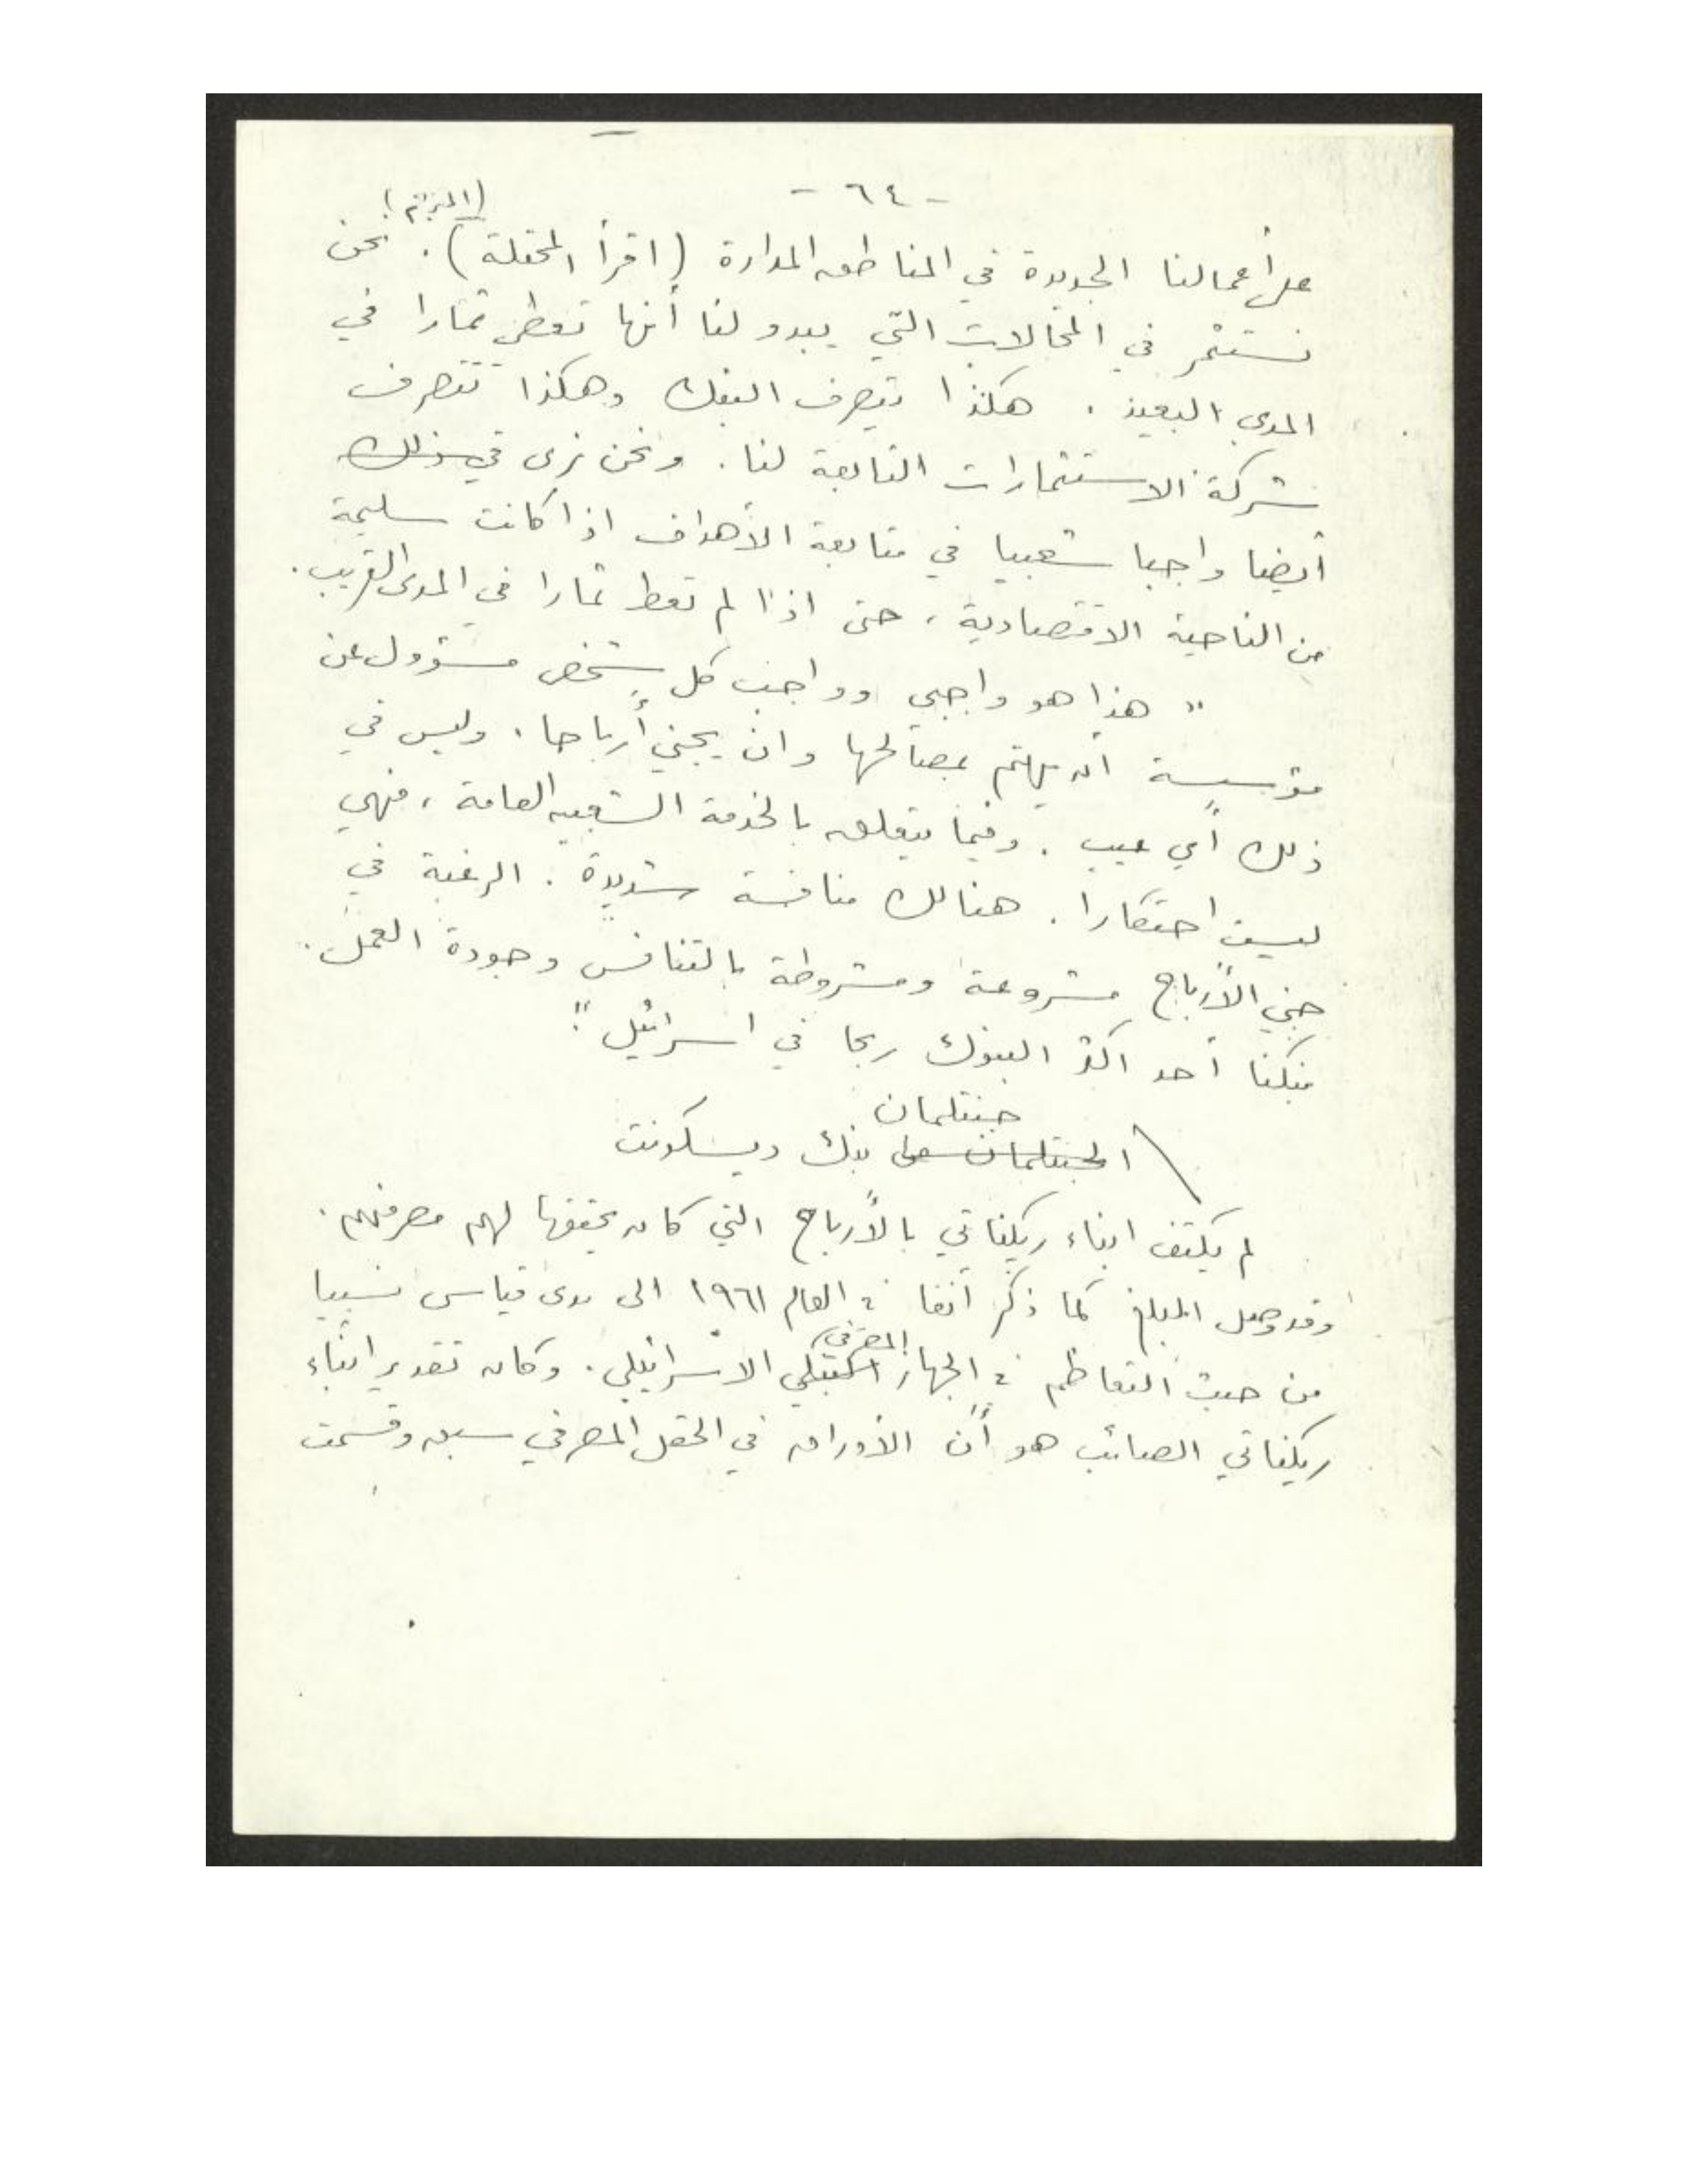 - ٦٤ -
(المترجم)
على أعمالنا الجديدة في المناطق المدارة (اقرأ المحتلة). نحن
نستثمر في المجالات التي يبدو لنا أنها تعطي ثمارا في
المدى البعيد. هكذا يتصرف البنك وهكذا تتصرف
شركة الاستثمارات التابعة لنا. ونحن نرى في ذلك
أيضا واجبا شعبيا في متابعة الأهداف اذا كانت سليمة
من الناحية الاقتصادية، حتى اذا لم تعط ثمارا في المدى القريب.
" هذا هو واجبي وواجب كل شخص مسؤول عن
مؤسسة ان يهتم بمصالحها وان يجني أرباحا. وليس في
ذلك أي عيب. وفيما يتعلق بالخدمة الشعبية العامة، فهي
ليست احتكارا. هنالك منافسة شديدة. الرغبة في
جني الأرباح مشروعة ومشروطة بالتنافس وجودة العمل.
بنكنا أحد اكثر البنوك ربحا في اسرائيل".
جنتلمان
الجنتلمان بنك ديسكونت
لم يكتف ابناء ريكناتي بالأرباح التي كان يحققها لهم مصرفهم.
وقد وصل المبلغ كما ذكر آنفا في العام ١٩٦١ الى مدى قياسي نسبيا
المصرفي
من حيث التعاظم في الجهاز البنكي الاسرائيلي. وكان تقدير ابناء
ريكناتي الصائب هو أن الأوراق في الحقل المصرفي سبق وقسمت